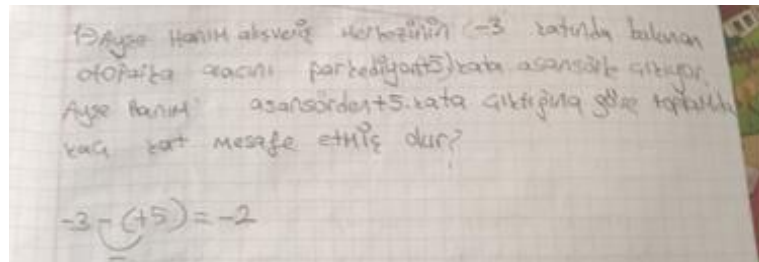 1-) Ayşe Hanım alışveriş Merkezinin (-3 katında bulunan
otoparka aracını parkediyor(+5) kata asansörle çıkıyor
Ayşe Hanım asansörden +5.kata çıktığına göre toplamda
kaç kat mesafe etmiş olur?
-3-(+5)=-2